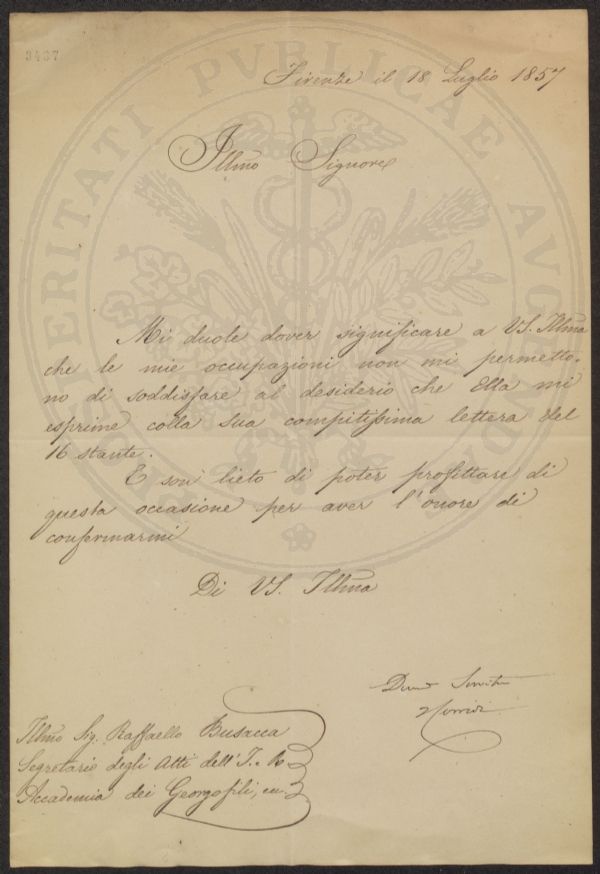 3467
Firenze il 18 Luglio 1857
Illmo Signore
Mi duole dover significare a VS. Illma
che le mie occupazioni non mi permetto-
no di soddisfare al desiderio che Ella mi
esprime colla sua compitissima lettera del
16 stante.
E son lieto di poter profittare di
questa occasione per aver l'onore di
confermarmi
Di VS. Illma
Illmo Sig. Raffaello Busacca
Segretario degli Atti dell'I. e R.
Accademia dei Georgofili,
PROSPERITATI PVBLICAE AVGENDAE